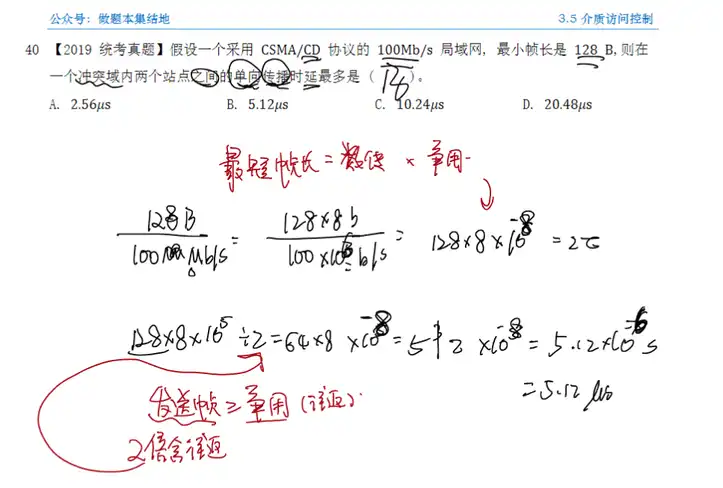 公众号：做题本集结地
3.5 介质访问控制
40 【2019 统考真题】假设一个采用 CSMA/CD 协议的 100Mb/s 局域网，最小帧长是 128 B,则在
一个冲突域内两个站点之间的单向传播时延最多是（ ）。
A. 2.56μs B. 5.12μs C. 10.24μs D. 20.48μs
最短帧长= × 争用
128B / 100 Mb/s = 128×8b / 100×10 b/s = 128×8×10⁻⁸ = 2τ
128×8×10 ÷2=64×8 ×10⁻⁸=512 ×10⁻⁸ = 5.12×10⁻⁶ s
=5.12 μs
发送帧≥争用(往返)
2倍含往返